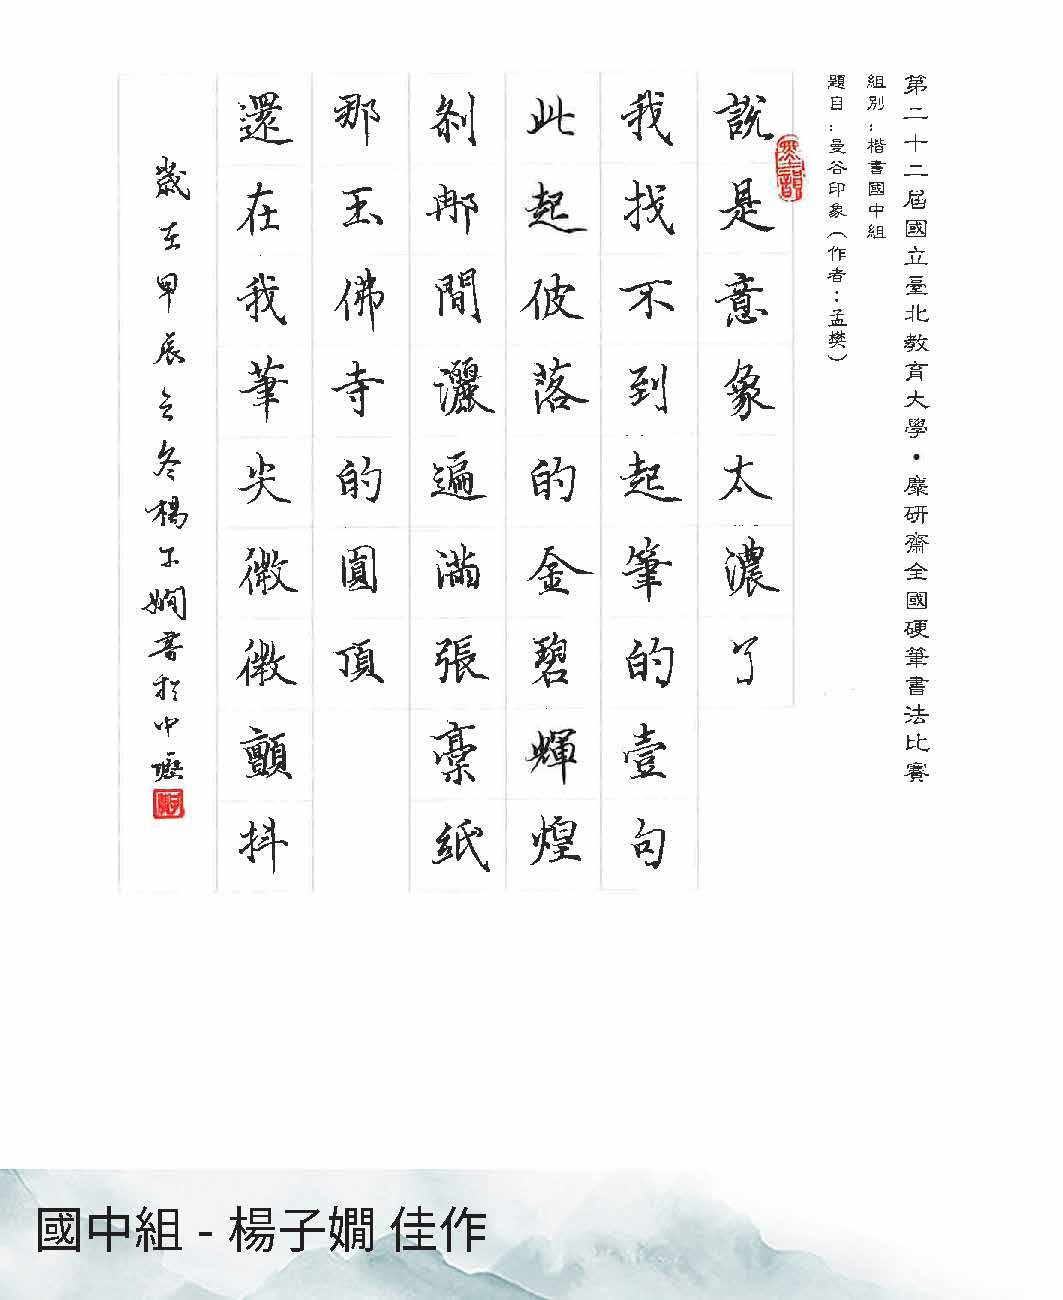 第二十二屆國立臺北教育大學•麋研齋全國硬筆書法比賽
組別：楷書國中組
題目：曼谷印象（作者：孟樊）
說是意象太濃了
我找不到起筆的壹句
此起彼落的金碧輝煌
剎那間灑遍滿張稾紙
那玉佛寺的圓頂
還在我筆尖微微顫抖
歲在甲辰立冬楊子嫺書於中壢
國中組 - 楊子嫺 佳作